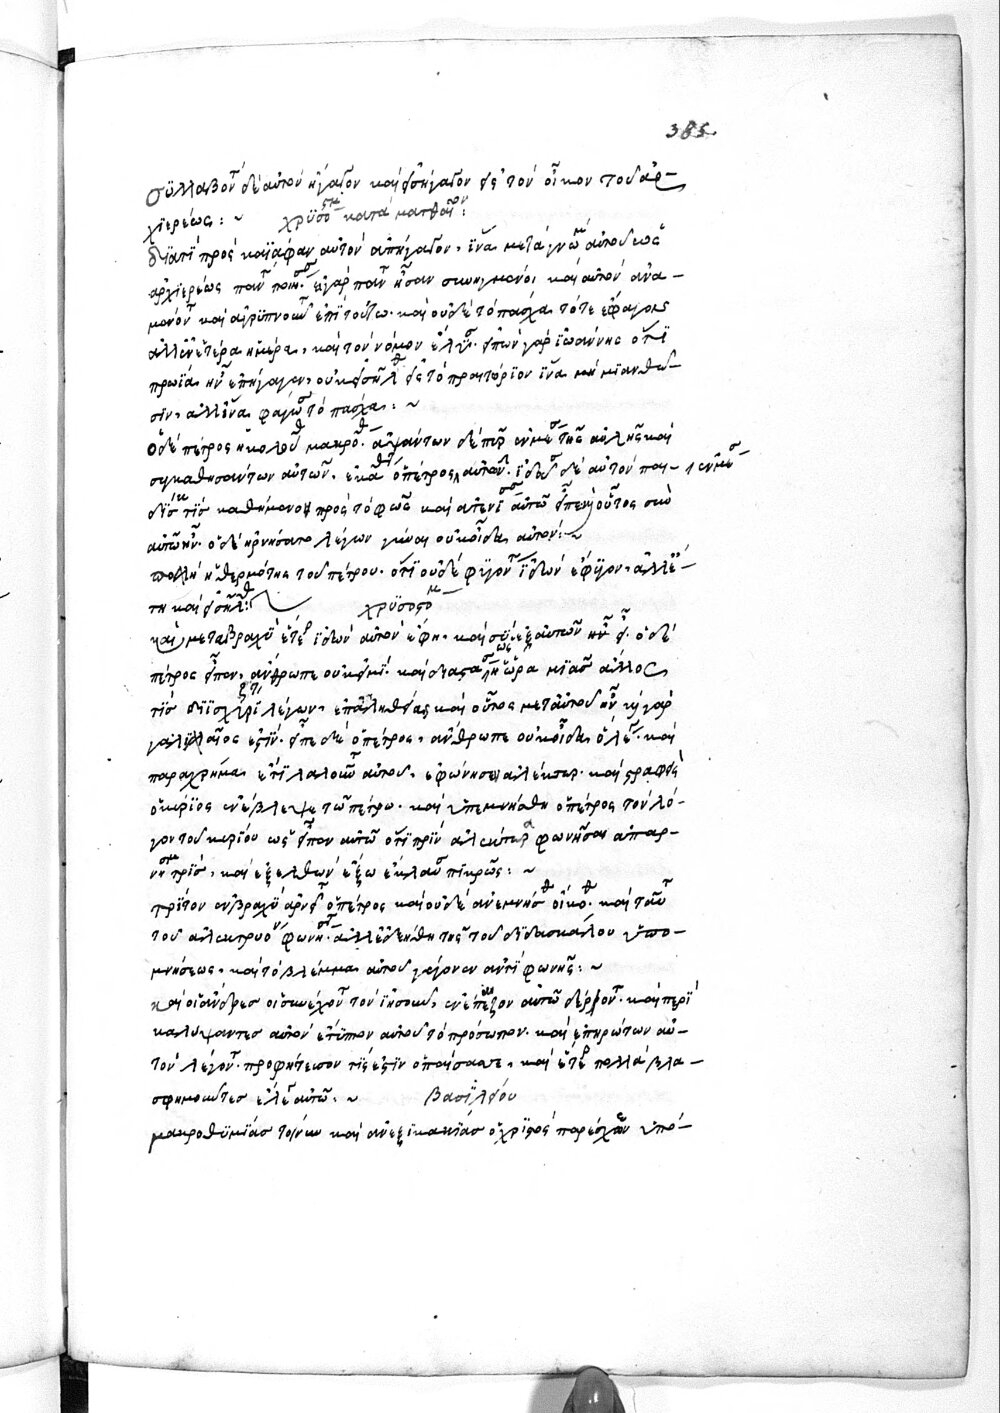 385
συλλαβόντ δὲ αὐτὸν ἤγαγον καὶ εἰσήγαγον εἰς τὸν οἶκον τοῦ ἀρ-
χιερέως: ~ χρυσοστμ κατὰ ματθαῖον:
διατί πρὸς καϊάφαν αὐτὸν ἀπήγαγον, ἵνα μετὰ γνώμ αὐτοῦ ὡς
ἀρχιερέως πάντ ποιήσ. ἐκεῖ γὰρ πάντ ἦσαν συνηγμένοι καὶ αὐτὸν ἀνα-
μένοντ καὶ ἀγρυπνοῦντ ἐπὶ τούτω· καὶ οὐδὲ τὸ πάσχα τότε ἔφαγον
ἀλλ' ἐν ἑτέρα ἡμέρα, καὶ τὸν νόμον ἔλυσ. εἰπὼν γὰρ ἰωάννης ὅτι
πρωία ἦν ἐπήγαγεν, οὐκ εἰσῆλθ εἰς τὸ πραιτώριον ἵνα μὴ μιανθῶ-
σιν, ἀλλ' ἵνα φάγωσ τὸ πάσχα: ~
ὁ δὲ πέτρος ἠκολούθ μακρόθ. ἁψάντων δὲ πῦρ ἐν μέσ τῆς αὐλῆς καὶ
συγκαθησάντων αὐτῶν, ἐκάθ ὁ πέτρος αὐτῶν. ἰδοῦσ δὲ αὐτὸν παι- ἐν μέσ
δίσκ τις καθήμενον πρὸς τὸ φῶς καὶ ἀτενίσ αὐτῶ εἶπεν καὶ οὗτος σὺν
αὐτῶ ἦν. ὁ δὲ ἠρνήσατο λέγων γύναι οὐκ οἶδα αὐτόν: ~
πολλὴ ἡ θερμότης τοῦ πέτρου. ὅτι οὐδὲ φεύγοντ ἰδὼν ἔφυγεν, ἀλλ' ἔσ-
τη καὶ εἰσῆλθ: χρυσοστομ
καὶ μετὰ βραχὺ ἕτερ ἰδὼν αὐτὸν ἔφη. καὶ σὺ ἐξ αὐτῶν εἶ. ὁ δὲ
πέτρος εἶπεν, ἄνθρωπε οὐκ εἰμί. καὶ διαστάσης ὡσεὶ ὥρα μιᾶσ ἄλλος
τις διϊσχυρίζετο λέγων, ἐπ' ἀληθείας καὶ οὗτος μετ' αὐτοῦ ἦν καὶ γὰρ
γαλιλαῖος ἐστίν. εἶπε δὲ ὁ πέτρος, ἄνθρωπε οὐκ οἶδα ὃ λέγ. καὶ
παραχρῆμα ἔτι λαλοῦντ αὐτοῦ, ἐφώνησεν ἀλέκτωρ. καὶ στραφεὶς
ὁ κύριος ἐνέβλεψε τῶ πέτρω. καὶ ὑπεμνήσθη ὁ πέτρος τοῦ λό-
γου τοῦ κυρίου ὡς εἶπεν αὐτῶ ὅτι πρὶν ἀλέκτορα φωνῆσαι ἀπαρ-
νήση τρίς, καὶ ἐξελθὼν ἔξω ἔκλαυσ πικρῶς: ~
τρίτον ἐν βραχεῖ ἀρνεῖτ ὁ πέτρος καὶ οὐδὲ ἀνεμνήσθ οἴκοθ. καὶ ταῦτ
τοῦ ἀλεκτρυόν φωνήσ. ἀλλ' ἐδεήθη τῆς τοῦ διδασκάλου ὑπο-
μνήσεως, καὶ τὸ βλέμμα αὐτοῦ γέγονεν ἀντὶ φωνῆς: ~
καὶ οἱ ἄνδρες οἱ συνέχοντ τὸν ἰησοῦν, ἐνέπαιζον αὐτῶ δέροντ. καὶ περι
καλύψαντες αὐτὸν ἔτυπτον αὐτοῦ τὸ πρόσωπον. καὶ ἐπηρώτων αὐ-
τὸν λέγοντ. προφήτευσον τίς ἐστιν ὁ παίσας σε, καὶ ἕτερ πολλὰ βλα-
σφημοῦντες ἔλεγ αὐτῶ. ~ βασιλείου
μακροθυμίας τοίνυν καὶ ἀνεξικακίας ὁ χριστὸς παρέσχεν ὑπό-